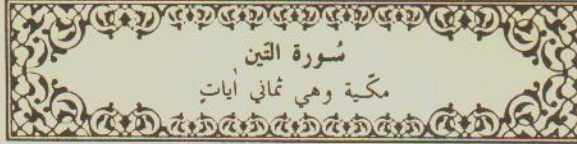 سُورة التّين
مكّية وهي ثماني أيٰاتٍ